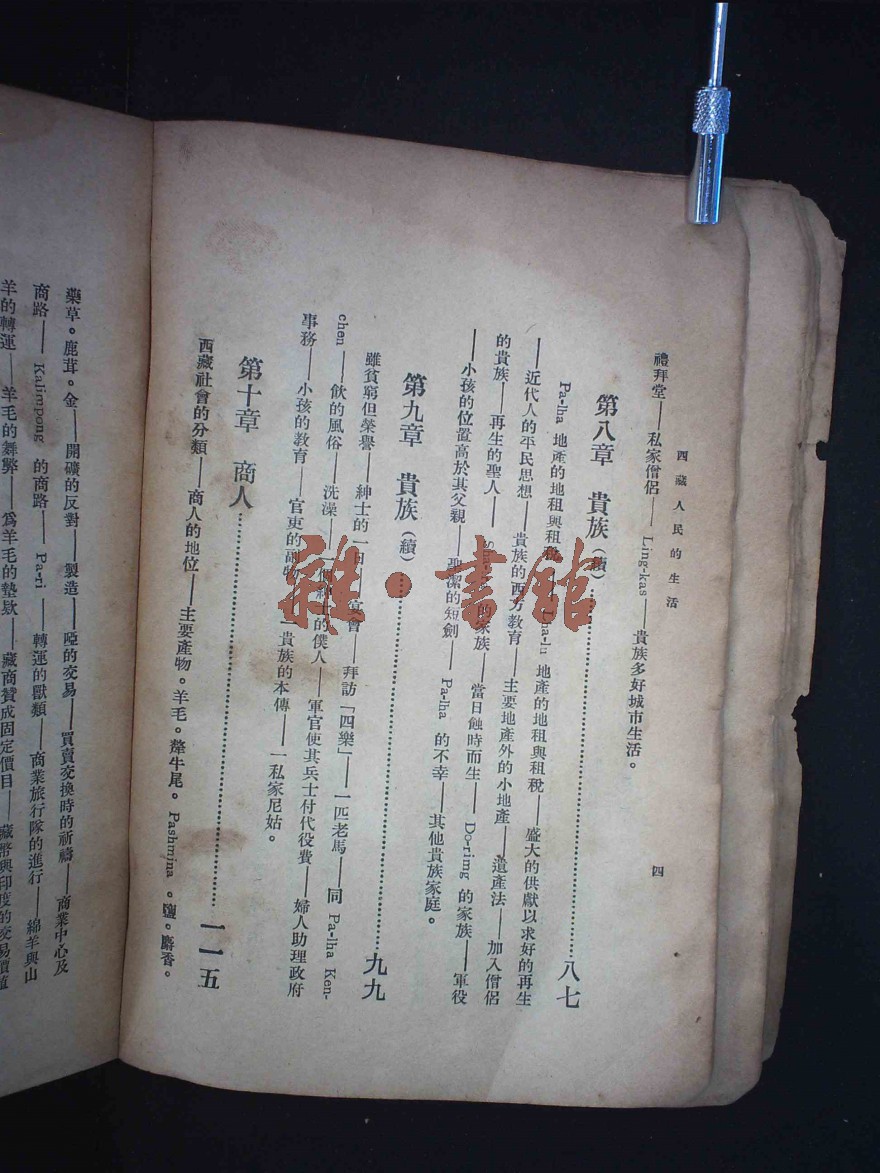 西藏人民的生活
四
禮拜堂——私家僧侶——Ling-kas——貴族多好城市生活。
第八章 貴族(續)……八七
Pa-lha 地產的地租與租稅 Lha-lu 地產的地租與租稅——盛大的供獻以求好的再生
——近代人的平民思想——貴族的西方教育——主要地產外的小地產——遺產法——加入僧侶
的貴族——再生的聖人—— 的家族——當日蝕時而生——Do-ring 的家族——軍役
——小孩的位置高於其父親——聖潔的短劍——Pa-lha 的不幸——其他貴族家庭。
第九章 貴族(續)……九九
雖貧窮但榮譽——紳士的一 宴會——拜訪「四樂」——一匹老馬——同 Pa-lha Ken-
chen——飲的風俗——洗澡——一個紳士的僕人——軍官使其兵士付代役費——婦人助理政府
事務——小孩的教育——官吏的 物——貴族的本傳——一私家尼姑。
第十章 商人……一一五
西藏社會的分類——商人的地位——主要產物。羊毛。犛牛尾。Pashmina。鹽。麝香。
藥草。鹿茸。金——開礦的反對——製造——啞的交易——買賣交換時的祈禱——商業中心及
商路——Kalimpong 的商路——Pa-ri——轉運的獸類——商業旅行隊的進行——綿羊與山
羊的轉運——羊毛的舞弊——爲羊毛的墊欵——藏商贊成固定價目——藏幣與印度的交易價值
雜·書館